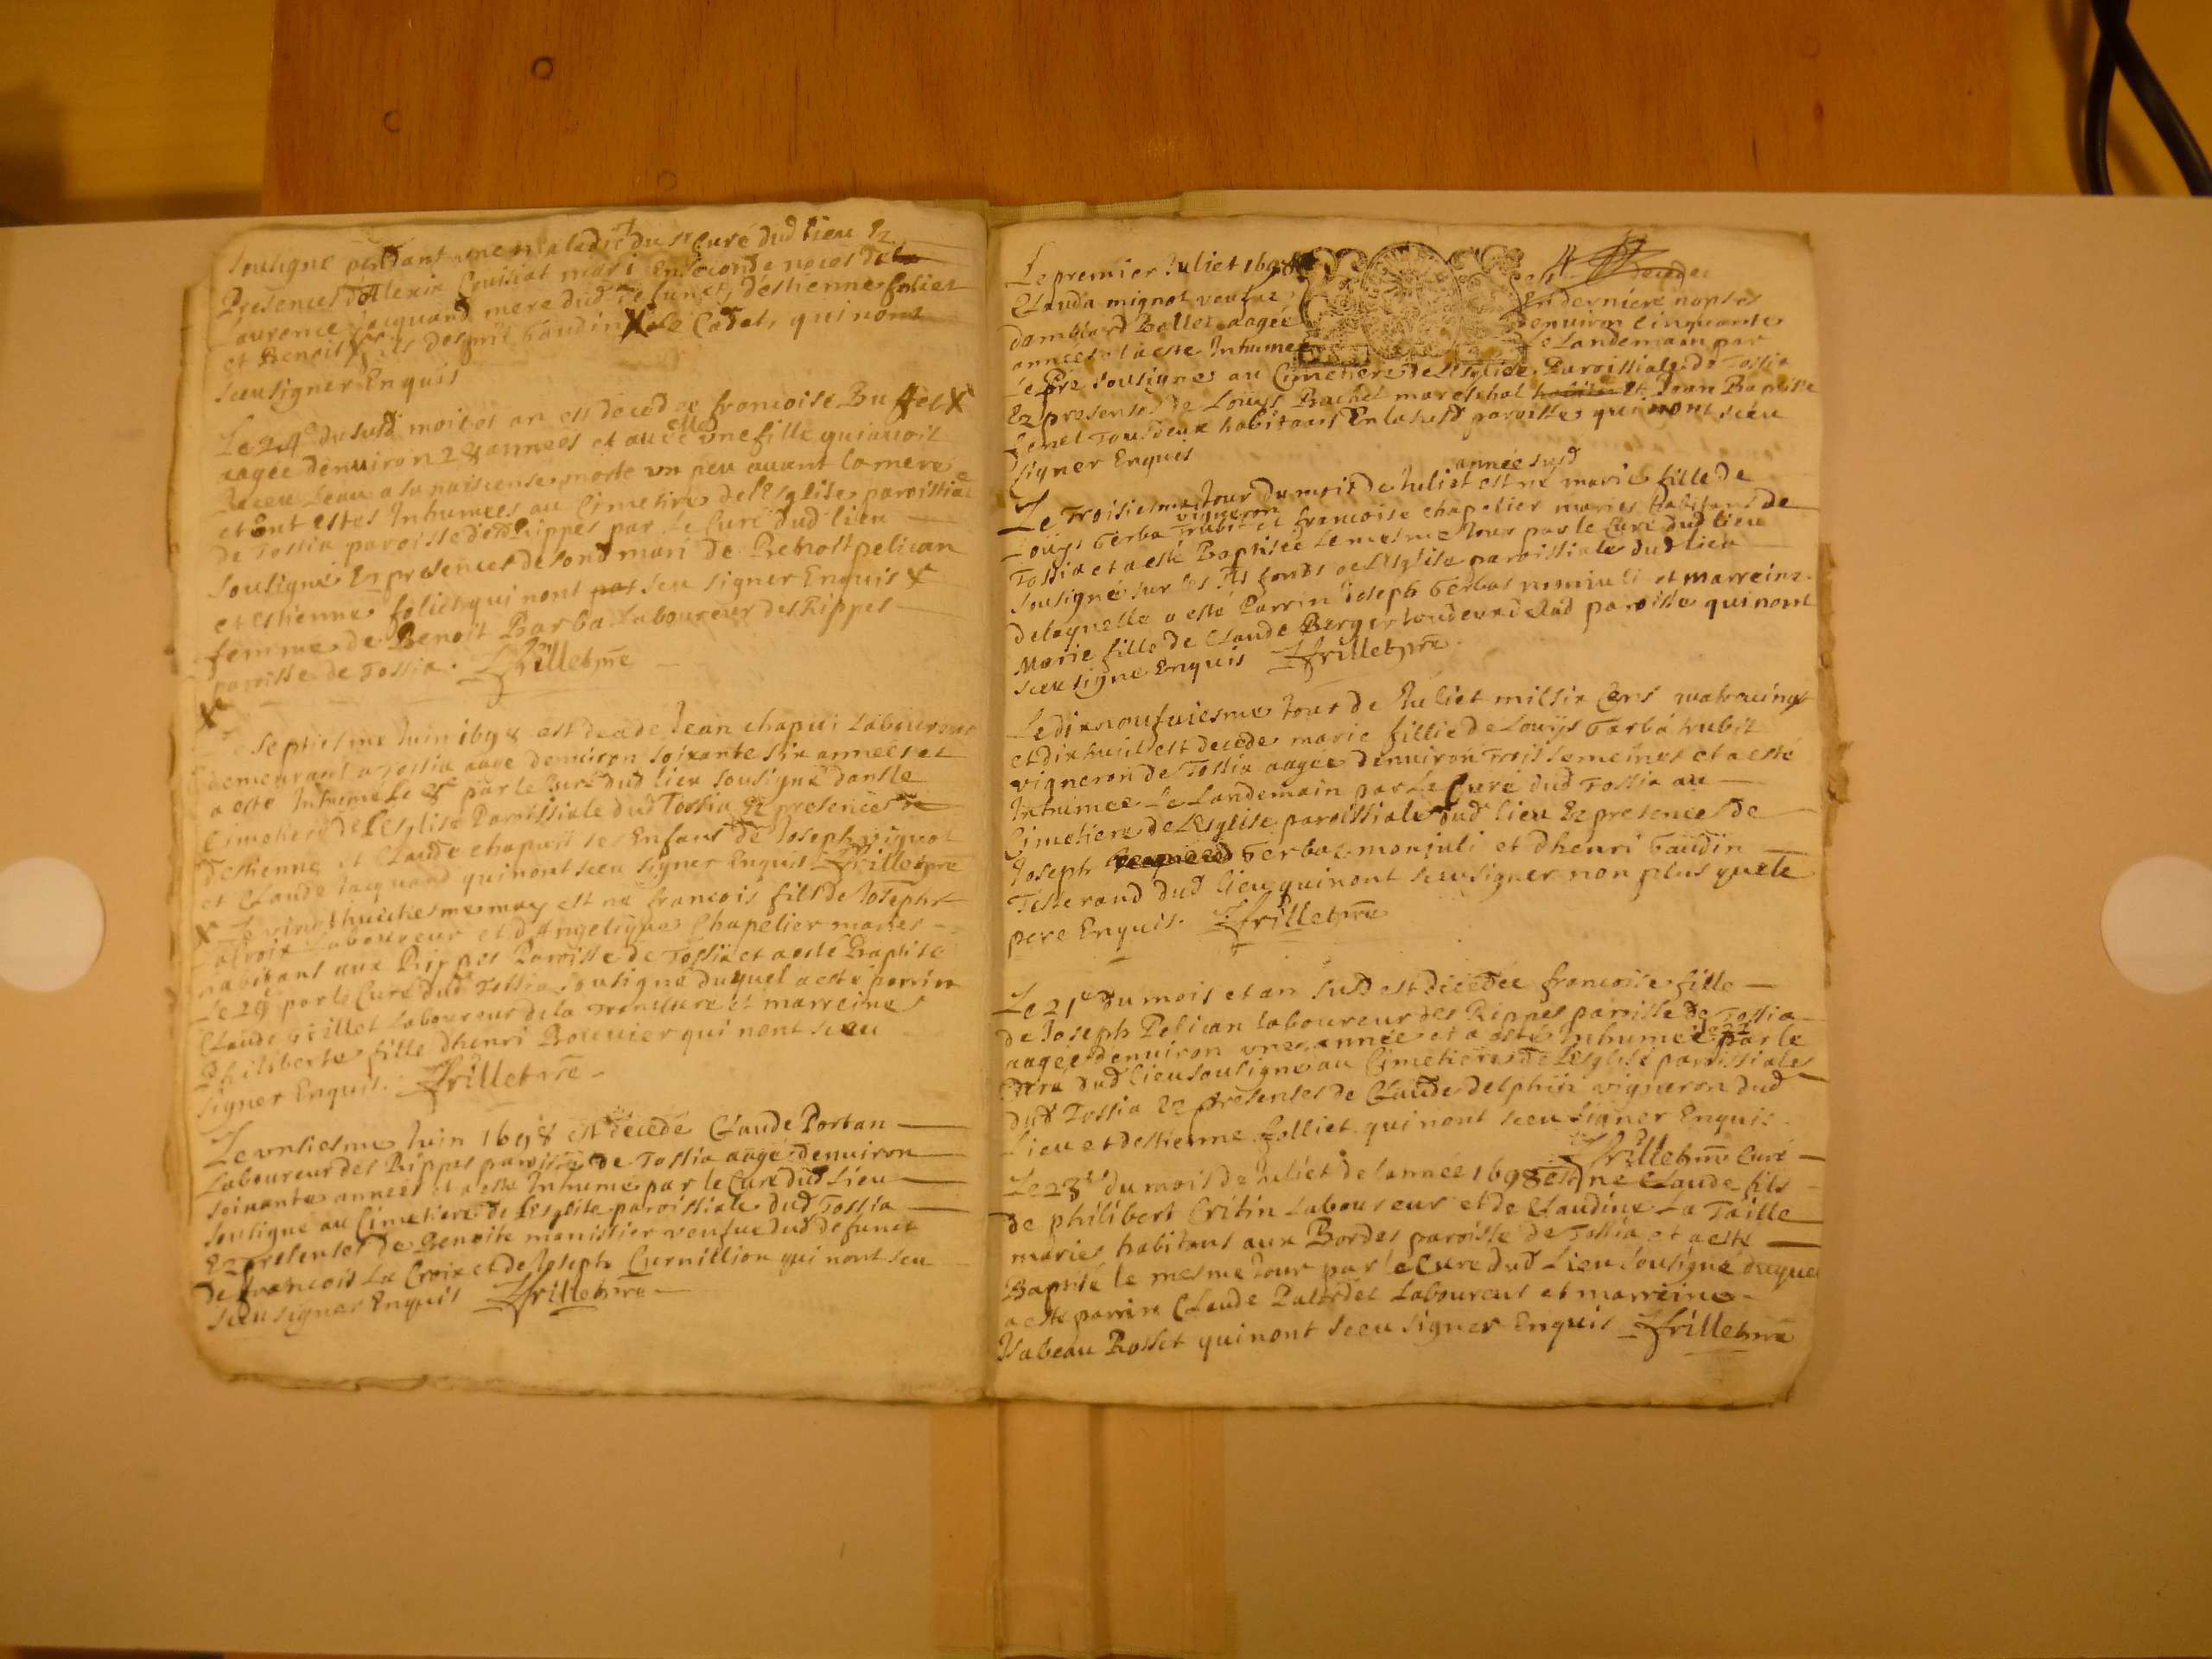 sousigne pendant une maladie du sr Curé dud lieu Ez
Presences d'Allexix Cruisiat mari En seconde noces de la
Laurence Jacquand mere dud defunct, destienne foliet
et Benoit fils desprit Gaudin X le Cadet, qui nont
sceu signer Enquis
Le 24e du susd mois et an est decedee francoise Buffet X
aagée denuiron 28 annees et auec elle une fille qui auoit
Receu Leau a sa naissense morte un peu auant la mere
et ont estes Inhumees au Cimetire de l'Esglise paroissiale
de Tossia paroisse desd Rippes par Le Curé dud lieu
sousigné Ez presences de sond mari de Benoist pelican
et estienne foliet qui nont pas sceu signer Enquis X
femme de Benoit Barba Laboureur des Rippes
paroisse de Tossia. Frillet pre
X
Le septiesme Juin 1698 est decede Jean chapuis Laboureur
demeurant a Tossia aage denuiron soixante six annees et
a este Inhumé Le 8e par le Curé dud lieu sousigné dans le
Cimetiere de l'Esglise Paroissiale dud Tossia Ez presences
destienne et Claude chapuis ses Enfans de Joseph vignot
et Claude Jacquand qui nont sceu signer Enquis Frillet pre
X Le vingt huictiesme may est né francois fils de Joseph
Lacroix Laboureur et d'Angelique Chapelier maries
habitans aux Rippes Paroisse de Tossia et a esté Baptisé
Le 29 par le Curé dud Tossia sousigné duquel a esté parrin
Claude Frillet Laboureur de la et marreine
Philiberte fille dhenri Bouuier qui nont sceu
signer Enquis. Frillet pre
Le unsiesme Juin 1698 est decede Claude Portan
Laboureur des Rippes paroisse de Tossia aagé denuiron
soixante annees et a este Inhume par le Curé dud Lieu
sousigné au Cimetiere de l'Esglise paroissiale dud Tossia
Ez presenses de Benoite manissier veufue dud defunct
de francois La Croix et de Joseph Curnillion qui nont sceu
sceu signer Enquis Frillet pre
Le premier Juliet 1698 est decedee
Clauda mignot veufue En derniere nopses
dambiard Bollet aagée denuiron Cinquante
annees et a este Inhumee Le Landemain par
Le Pre sousigne au Cimetiere de L'Esglise Paroissiale de Tossia
Ez presenses de Louys Bachel mareschal et Jean Baptiste
fenel Tous deux habitans En lasusd paroisse qui nont sceu
signer Enquis
année susd
Le Troisiesme Jour du mois de Juliet est né marie fille de
vigneron
Louys Gerba Trubit et francoise chapelier mariés habitans de
Tossia et a esté Baptisée Le mesme Jour par le Curé dud lieu
sousigné sur les fonds de L'Esglise paroissiale dud lieu
delaquelle a esté Parrin Joseph Gerbas monjuli et marreine
Marie fille de Claude Berger tousdeux delad paroisse qui nont
sceu signe Enquis Frillet pre
Le dixnoufuiesme Jour de Juliet mil six Cens quatreuingt
et dix huit est decede marie fillie de Louys Garba Trubit
vigneron de Tossia aagée denuiron Trois semeines et a esté
Inhumee Le Landemain par Le Curé dud Tossia au
Cimetiere de L'Esglise paroissiale dud lieu Ez presences de
Joseph Gerbaz monjuli et dhenri Gaudin
Tisserand dud lieu qui nont sceu signer non plus que le
pere Enquis. Frillet pre
Le 21e du mois et an susd est decedée francoise fille
de Joseph Pelican Laboureur des Rippes paroisse de Tossia
aagée denuiron une année et a esté Inhumée le 22 par le
Curé dud lieu sousigné au Cimetiere de L'Esglise paroissiale
dud Tossia Ez presenses de Claude Delphin vigneron dud
Lieu et destienne folliet qui nont sceu signer Enquis
Frillet pre Curé
Le 23e du mois de Juliet de lannée 1698 est né Claude fils
de philibert Critin Laboureur et de Claudine La Taille
mariés habitans aux Bordes paroisse de Tossia et a esté
Baptisé le mesme Jour par le Curé dud Lieu sousigné duquel
a esté parrin Claude Palordet Laboureur et marreine
Isabeau Rosset qui nont sceu signer Enquis Frillet pre